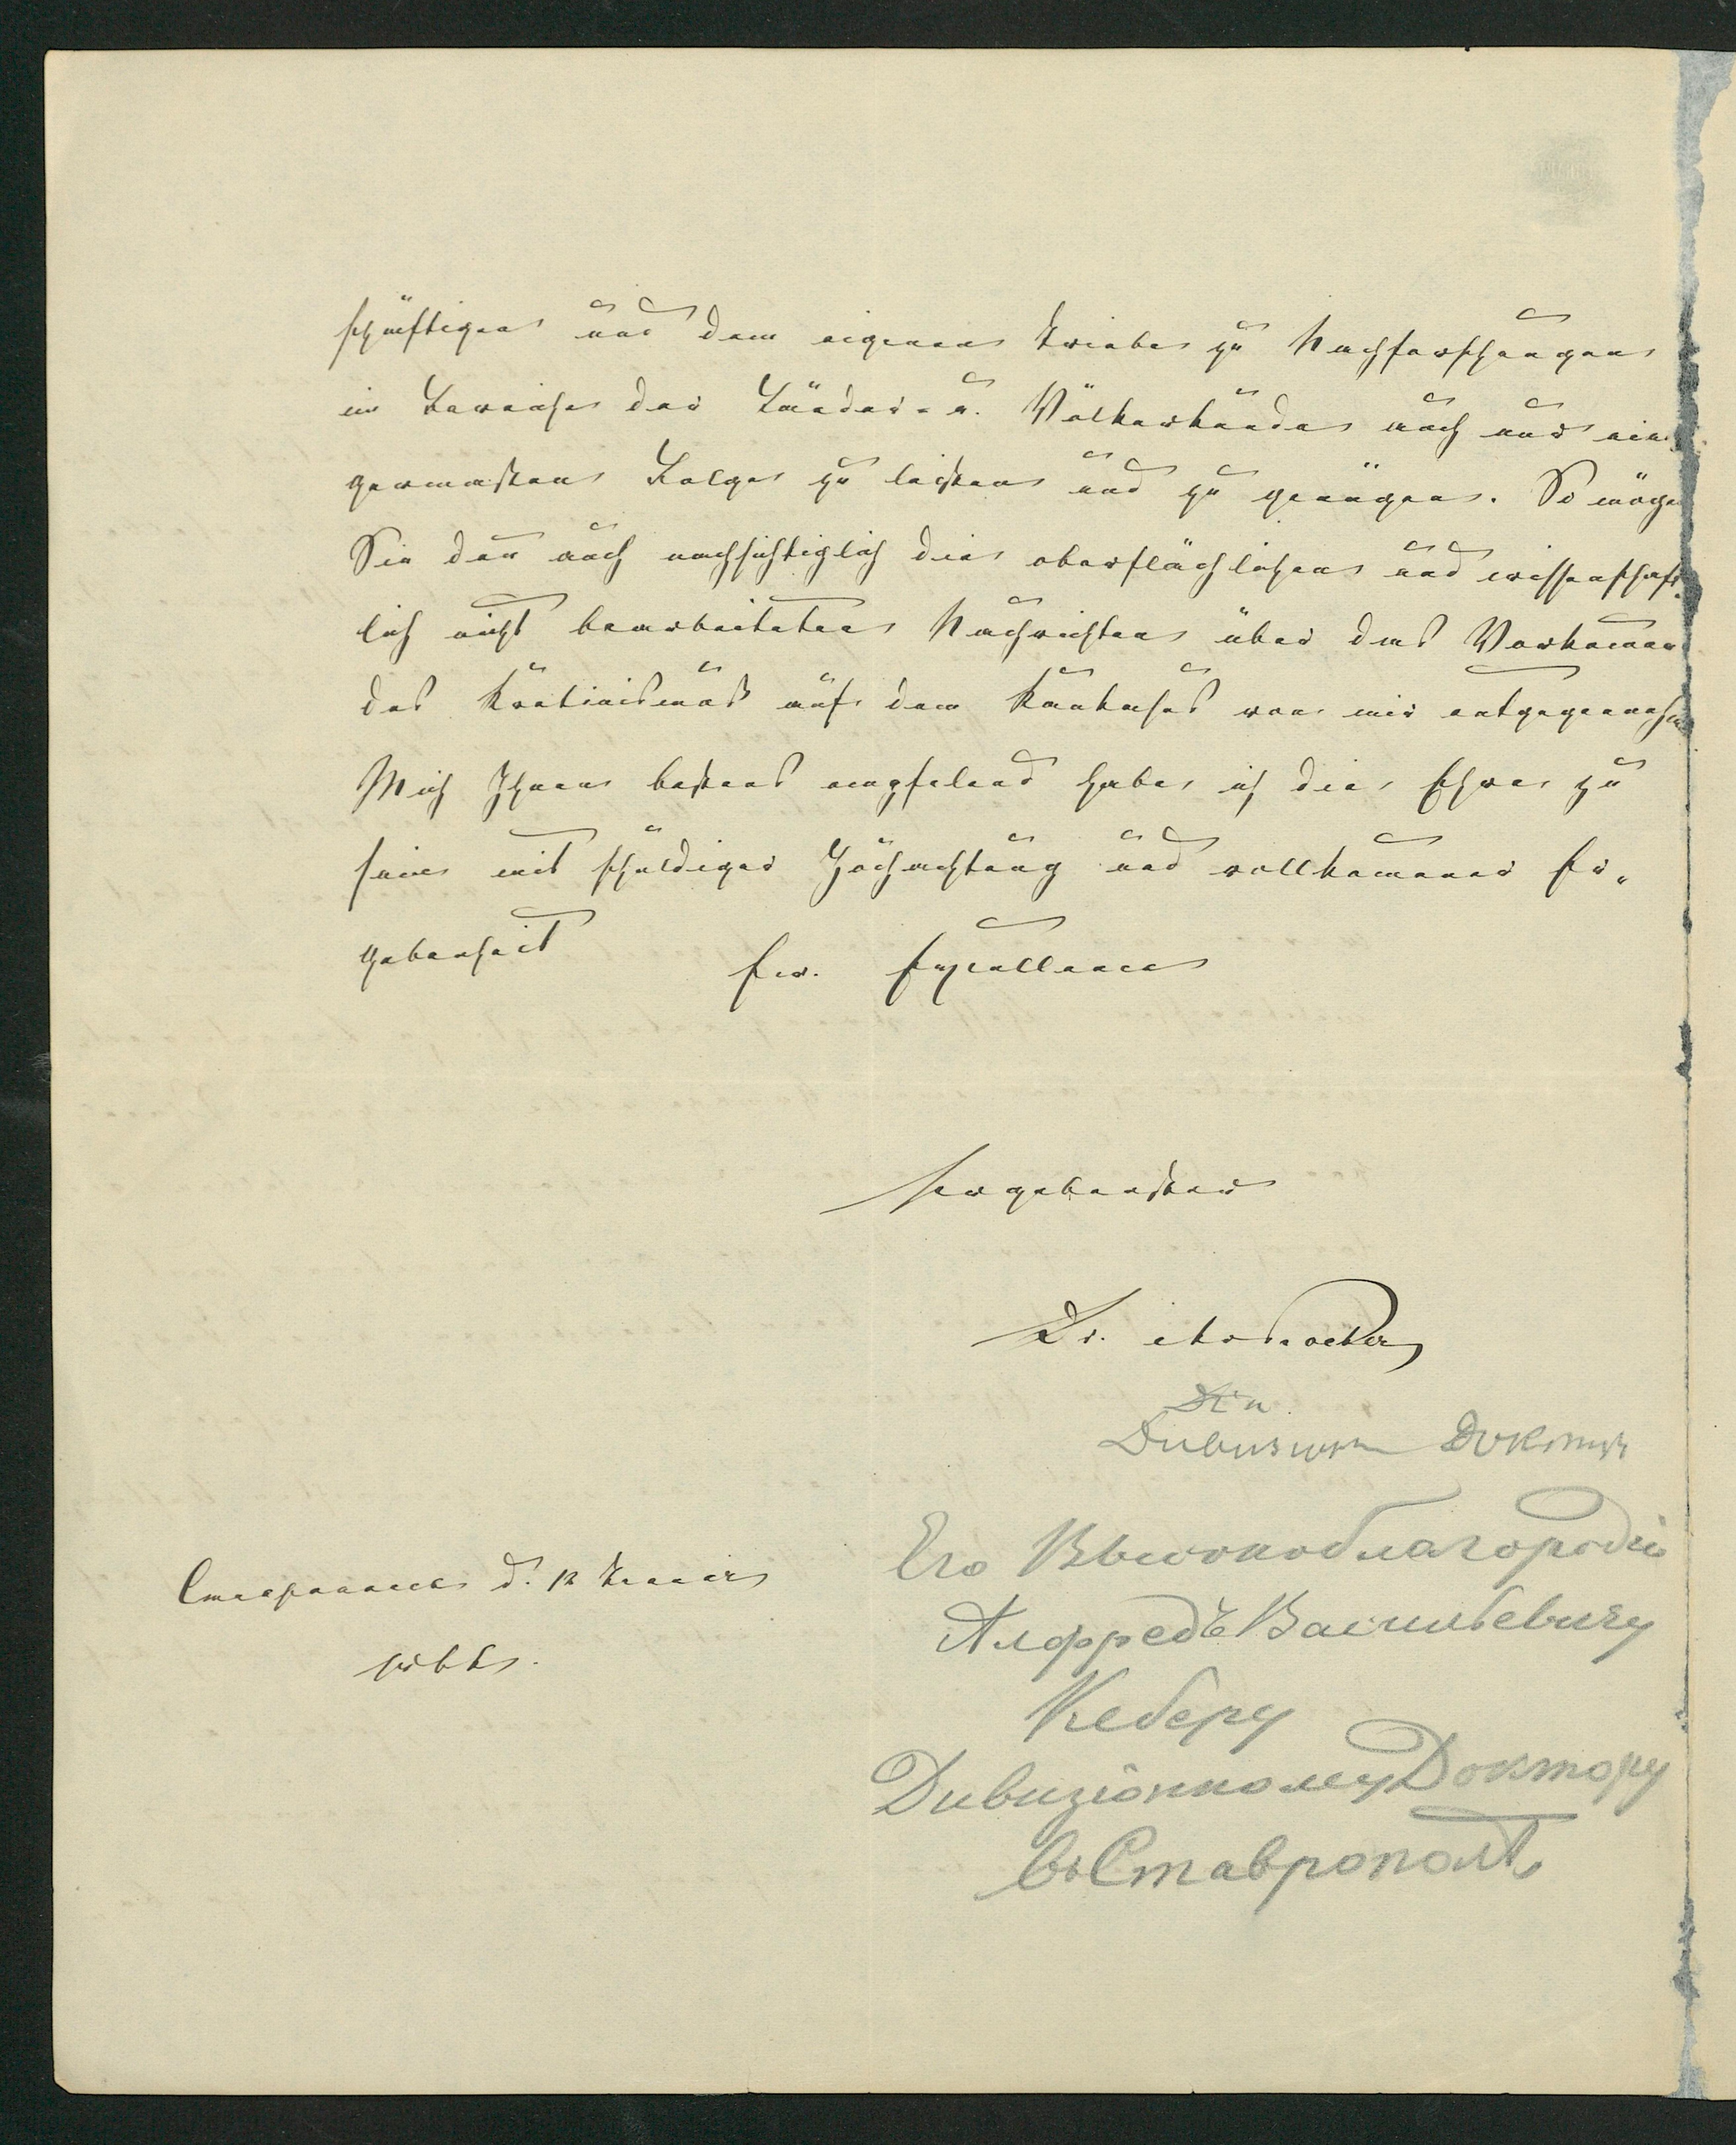 schäftigen und dem eigenen Triebe zu Nachforschungen
im Bereiche der Länder- u. Völkerkunde auch nur eini-
germassen Folge zu leisten und zu genügen. So mögen
Sie den auch nachsichtiglich die oberflächlichen und wissenschaft-
lich nicht bearbeiteten Nachrichten über das Vorkommen
des Kretinismus auf dem Kaukasus von mir entgegennehmen
Mich Ihnen bestens empfelend habe ich die Ehre zu
sein mit schuldiger Hochachtung und vollkomener Er-
gebenheit Ew. Excellence
ergebenster
Dr.
Дивизион Доктор
Его Высокоблагородію
Алфредъ Васильевичу
Кеберу
Дивизіонному Доктору
въ Ставрополѣ
d. 12